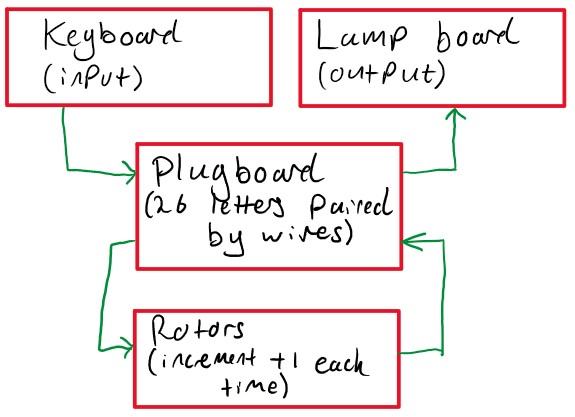 Keyboard
(input)
Lamp board
(output)
Plugboard
(26 letters paired
by wires)
Rotors
(increment +1 each
time)